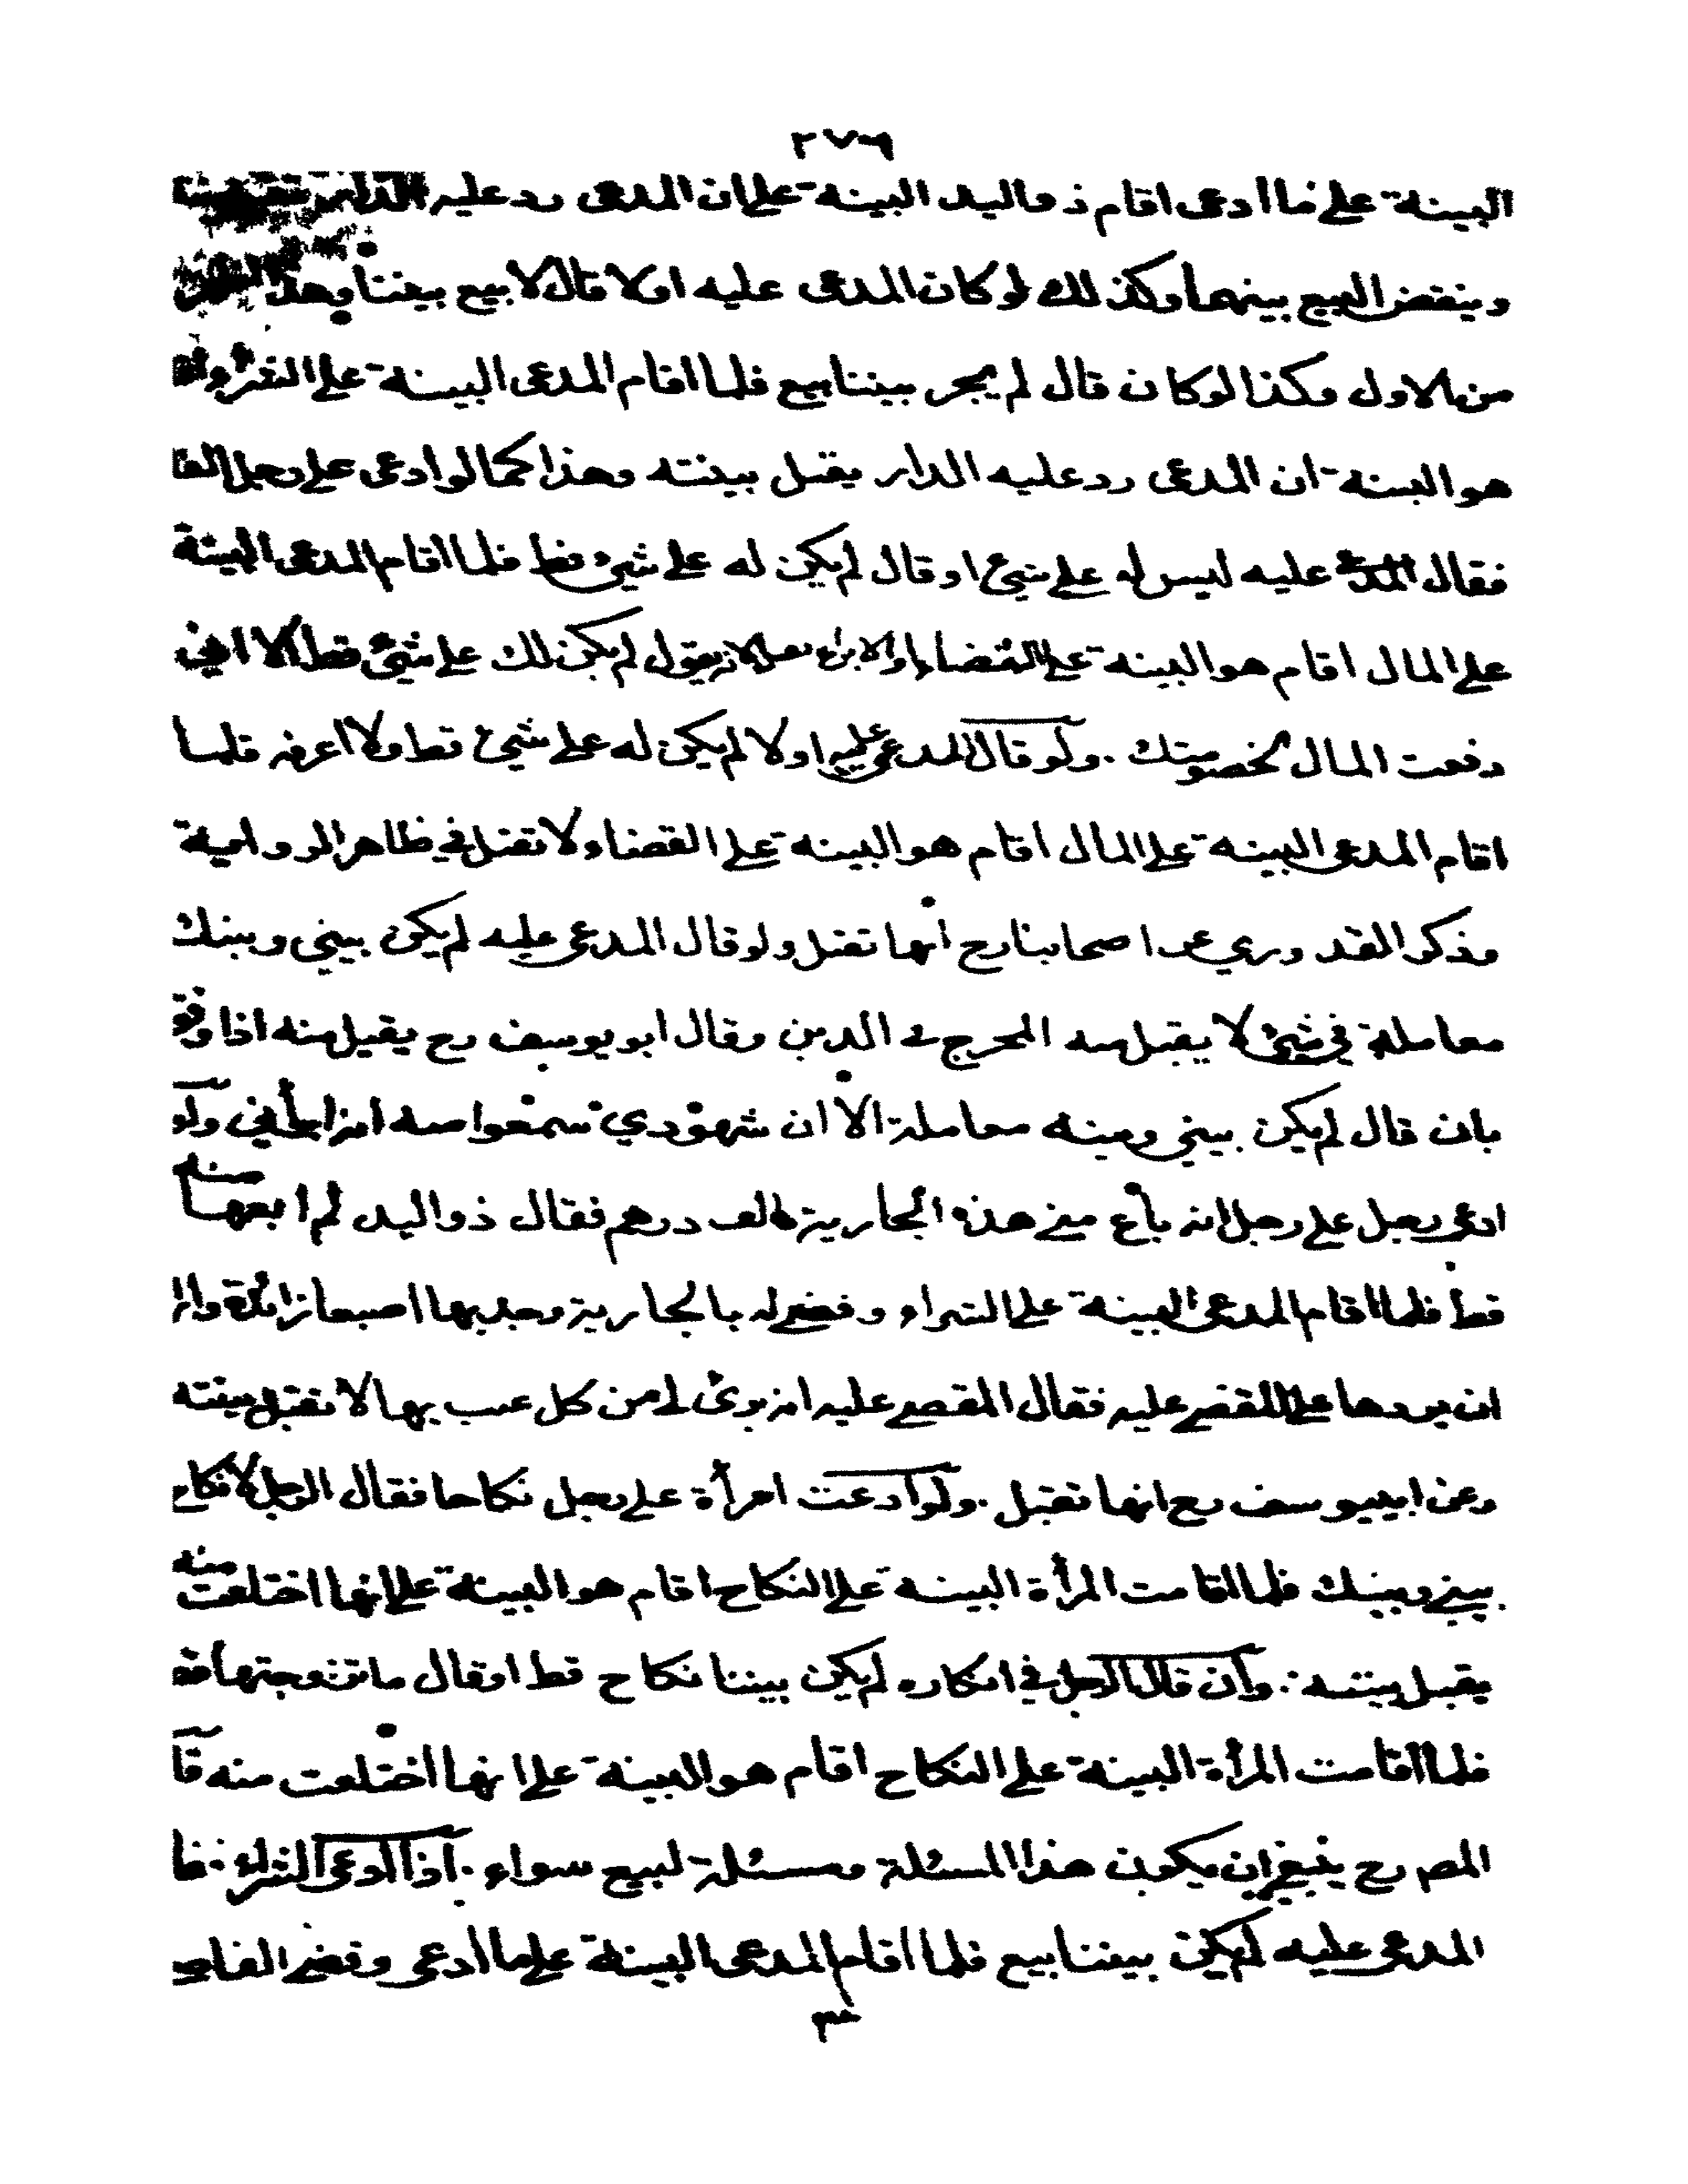 ٢٧٦
البينة على ما ادعى اقام ذو اليد البينة على ان المدعى رد عليه الدار
وينقض البيع بينهما وكذلك لو كان المدعى عليه اولا قال لا بيع بيننا وهذا
من الاول وكذا لو كان قال لم يجر بيننا بيع فلما اقام المدعى البينة على الشراء
هو البينة ان المدعى رد عليه الدار يقبل بينته وهذا كما لو ادعى على رجل الفا
فقال المدعى عليه ليس له على شئ او قال لم يكن له على شئ قط فلما اقام المدعى البينة
على المال اقام هو البينة على القضاء او الابراء يقبل لانه يقول لم يكن لك على شئ قط الا انى
دفعت المال لخصومتك . ولو قال المدعى عليه اولا لم يكن له على شئ قط ولا اعرفه فلما
اقام المدعى البينة على المال اقام هو البينة على القضاء لا تقبل في ظاهر الرواية
وذكر القد وري عن اصحابنا رح انها تقبل ولو قال المدعى عليه لم يكن بيني وبينك
معاملة في شئ لا يقبل منه المخرج في الدين وقال ابو يوسف رح يقبل منه اذا وفق
بان قال لم يكن بيني وبينه معاملة الا ان شهودي سمعوا منه انه ابرأني ولو
ادعى رجل على رجل انه باع منى هذه الجارية بالف درهم فقال ذو اليد لم ابعها منه
قط فلما اقام المدعى البينة على الشراء وقضى له بالجارية وجد بها اصبعا زائدة واراد
ان يردها على المقضى عليه فقال المقضى عليه انه برئ لى من كل عيب بها لا تقبل بينته
وعن ابى يوسف رح انها تقبل . ولو ادعت امرأة على رجل نكاحا فقال الرجل لا نكاح
بيني وبينك فلما اقامت المرأة البينة على النكاح اقام هو البينة على انها اختلعت منه
يقبل بينته . وان قال الرجل في انكاره لم يكن بيننا نكاح قط او قال ما تزوجتها قط
فلما اقامت المرأة البينة على النكاح اقام هو البينة على انها اختلعت منه قال
المص رح ينبغى ان يكون هذا المسئلة ومسئلة لبيع سواء . اذا ادعى الشراء فقال
المدعى عليه لم يكن بيننا بيع فلما اقام المدعى البينة على ما ادعى وقضى القاضى